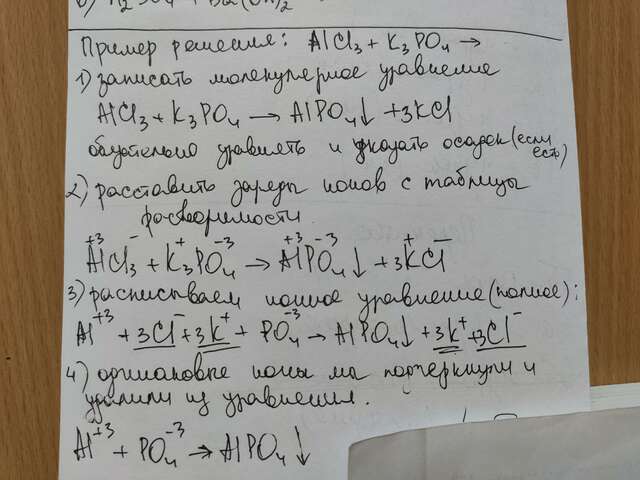 б) H₂SO₄ + Ba(OH)₂
Пример решения: AlCl₃ + K₃PO₄ →
1) записать молекулярное уравнение
AlCl₃ + K₃PO₄ → AlPO₄↓ + 3KCl
обязательно уравнять и указать осадок (если есть)
2) расставить заряды ионов с таблицы
растворимости.
Al⁺³Cl₃⁻ + K₃⁺PO₄⁻³ → Al⁺³PO₄⁻³↓ + 3K⁺Cl⁻
3) расписываем ионное уравнение (полное):
Al⁺³ + 3Cl⁻ + 3K⁺ + PO₄⁻³ → AlPO₄↓ + 3K⁺ + 3Cl⁻
4) одинаковые ионы мы подчеркнули и
удалили из уравнения.
Al⁺³ + PO₄⁻³ → AlPO₄↓